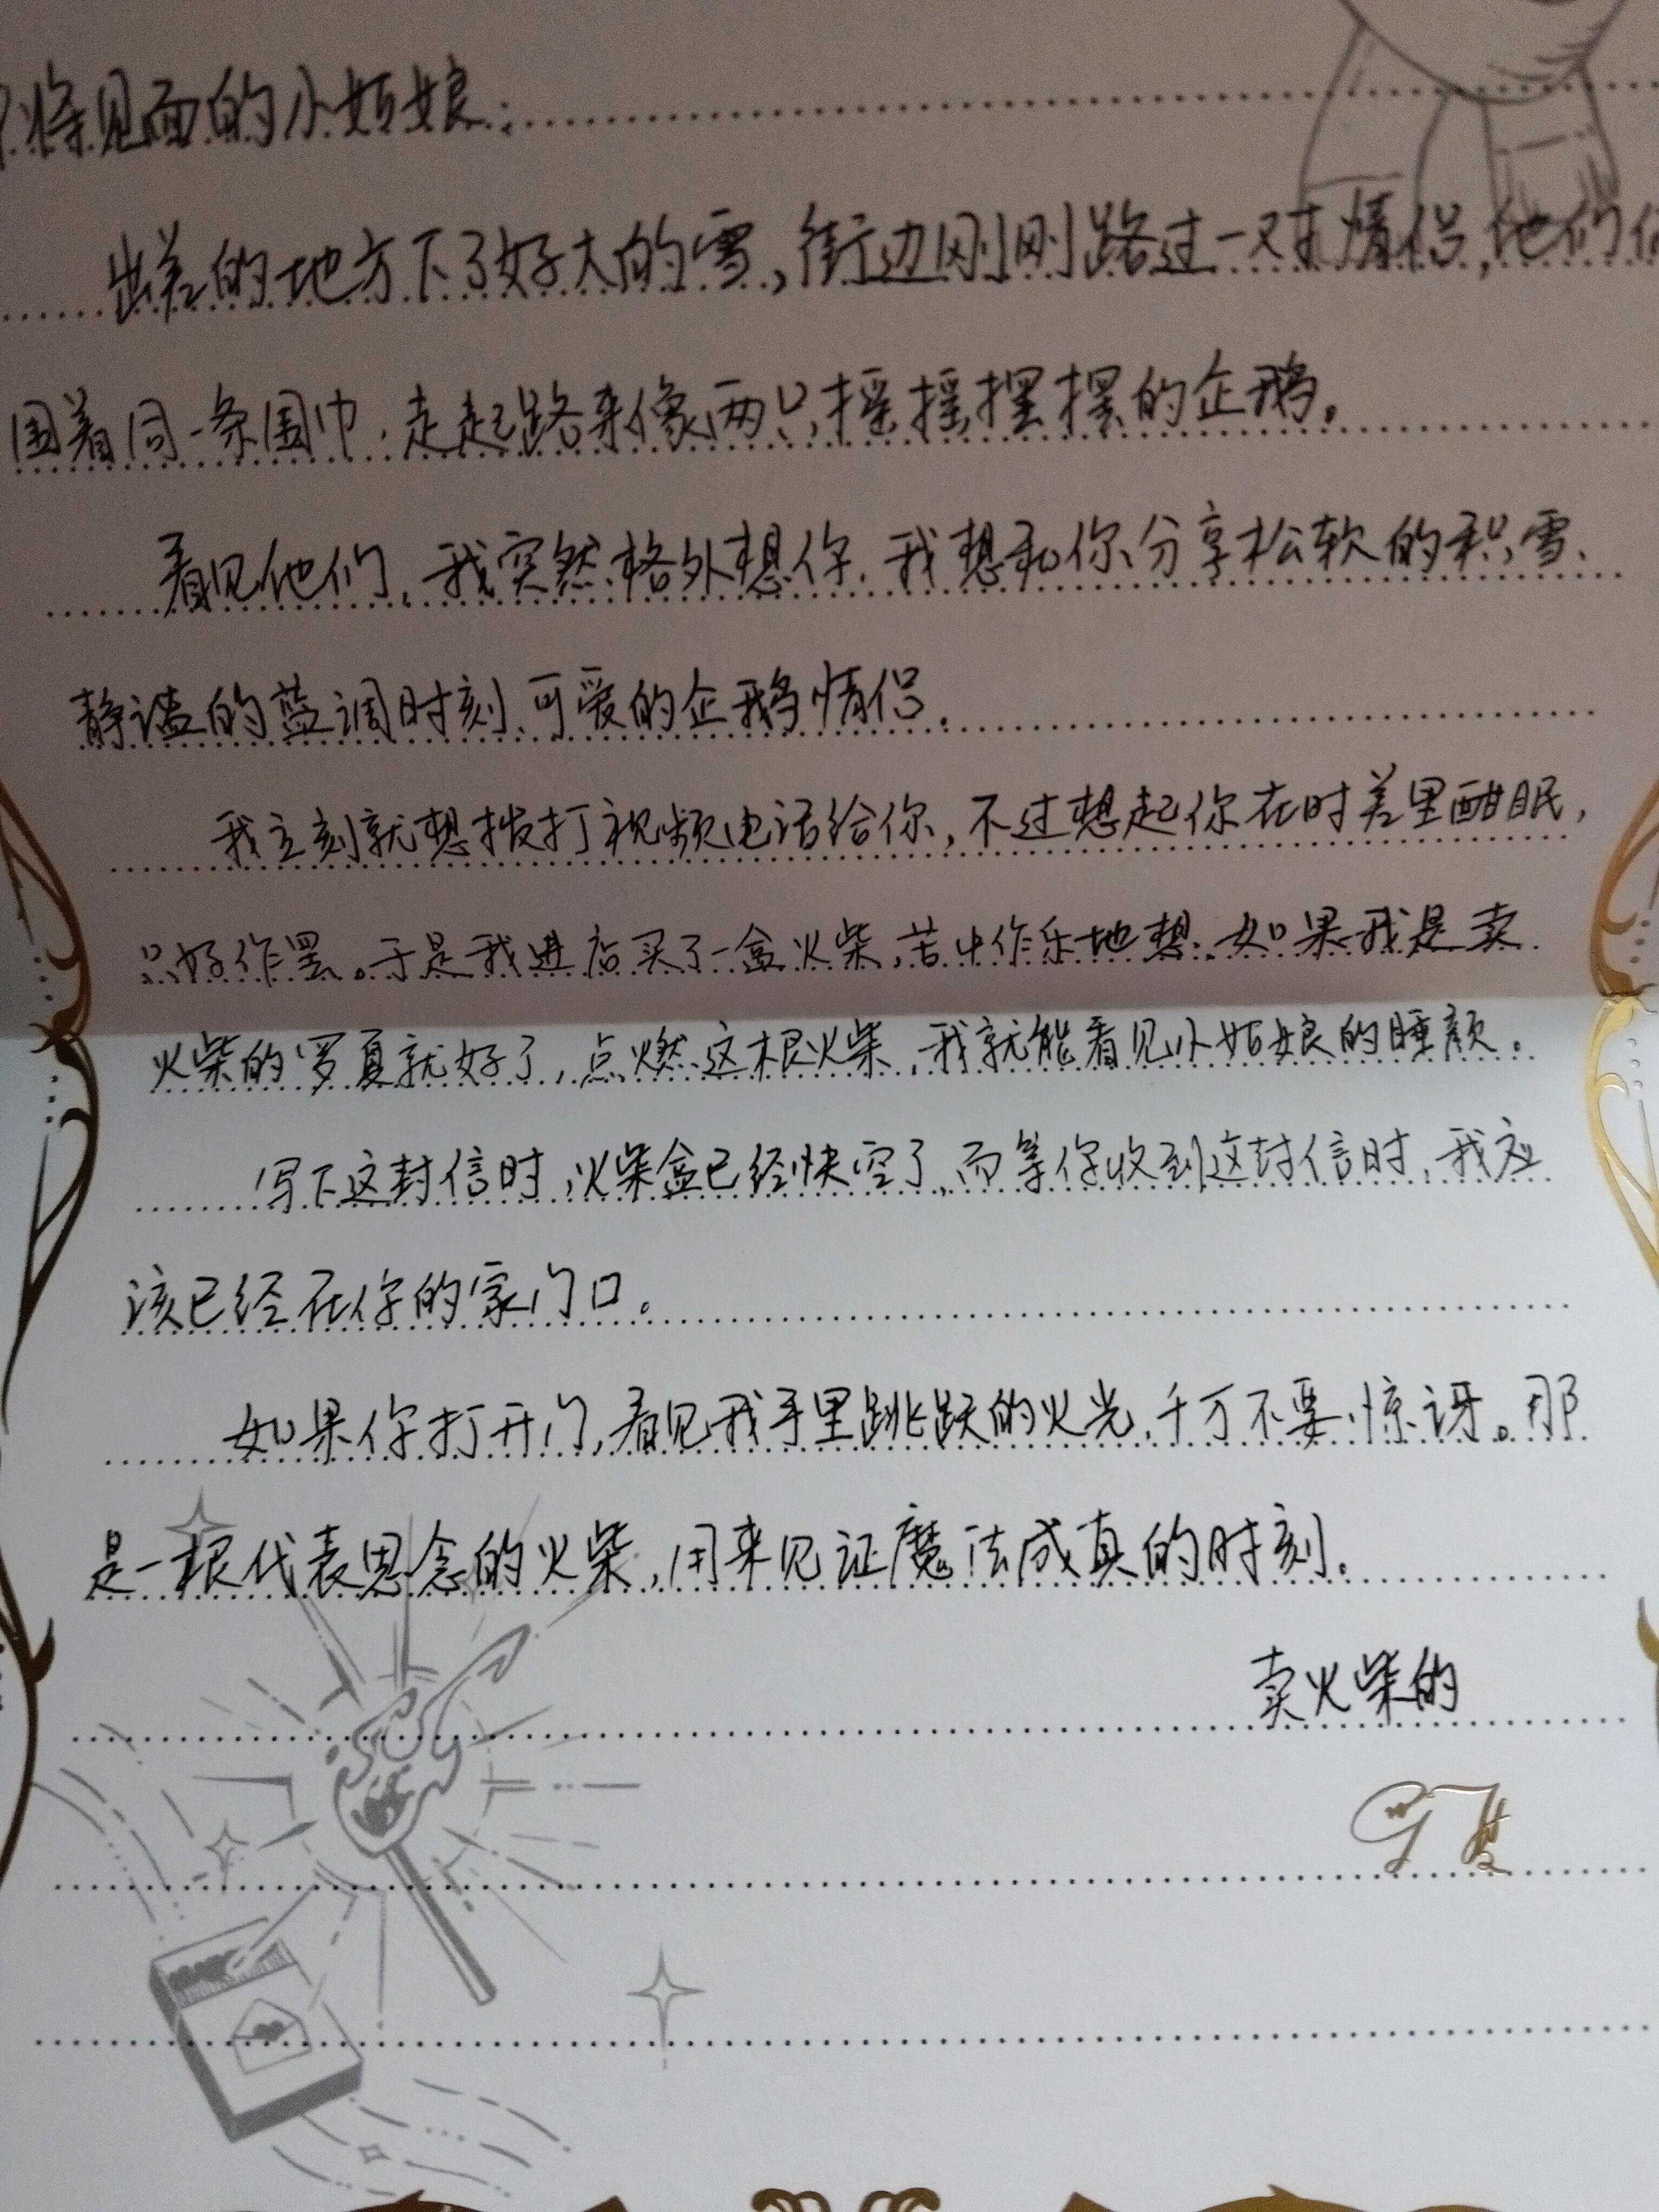 将见面的小姑娘:
出差的地方下了好大的雪,街边刚刚路过一对情侣,他们
围着同一条围巾,走起路来像两只摇摇摆摆的企鹅。
看见他们,我突然格外想你,我想和你分享松软的积雪、
静谧的蓝调时刻、可爱的企鹅情侣。
我立刻就想拨打视频电话给你,不过想起你在时差里酣眠,
只好作罢。于是我进店买了一盒火柴,苦中作乐地想:如果我是卖
火柴的罗夏就好了,点燃这根火柴,我就能看见小姑娘的睡颜。
写下这封信时,火柴盒已经快空了,而等你收到这封信时,我应
该已经在你的家门口。
如果你打开门,看见我手里跳跃的火光,千万不要惊讶。那
是一根代表思念的火柴,用来见证魔法成真的时刻。
卖火柴的